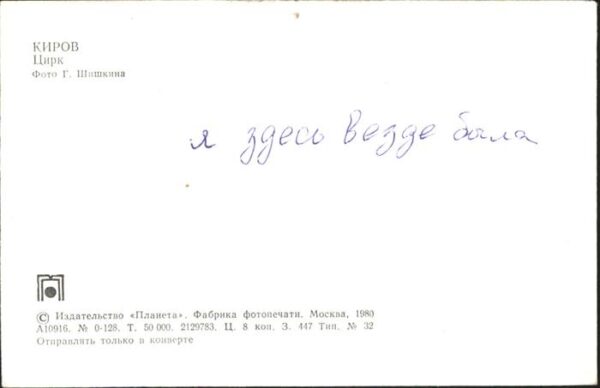 КИРОВ
Цирк
Фото Г. Шишкина
я здесь везде была
© Издательство «Планета». Фабрика фотопечати. Москва, 1980
А10916. № 0-128. Т. 50 000. 2129783. Ц. 8 коп. З. 447 Тип. № 32
Отправлять только в конверте